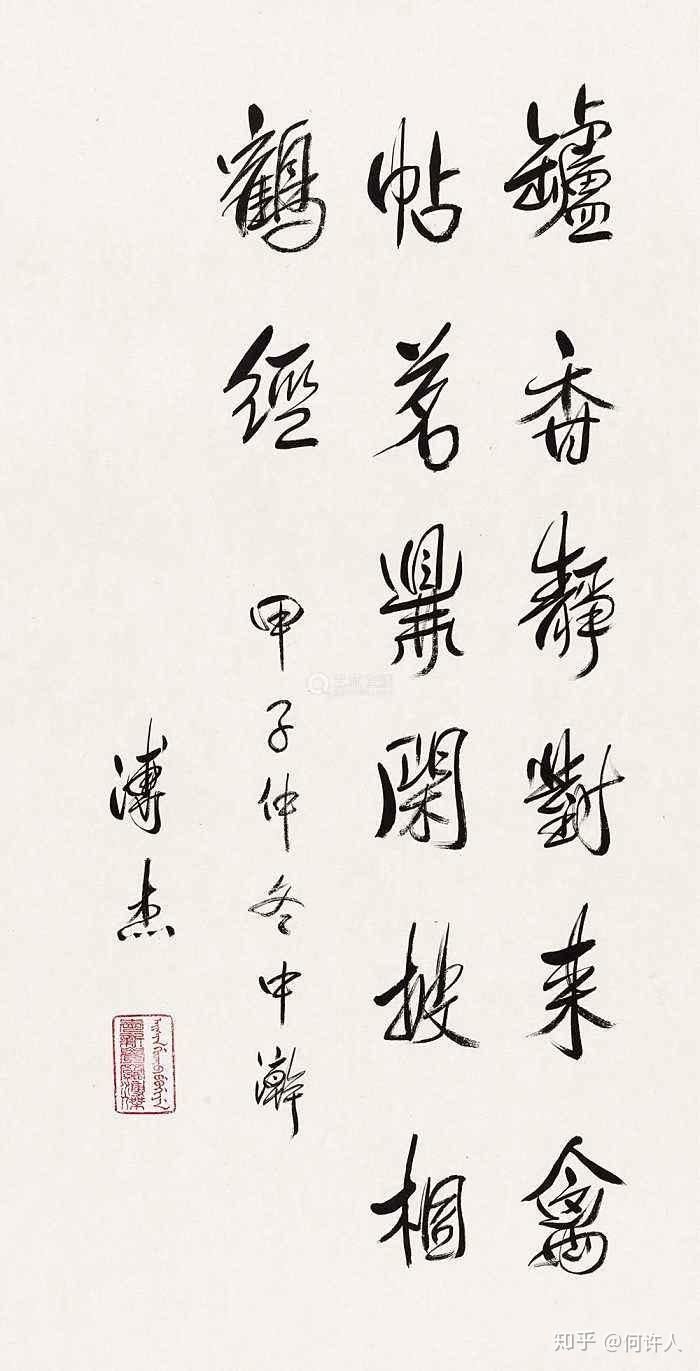 罏香靜對来禽
帖茗鼎閑披相
鶴經
甲子仲冬中澣
溥杰
知乎 @何许人